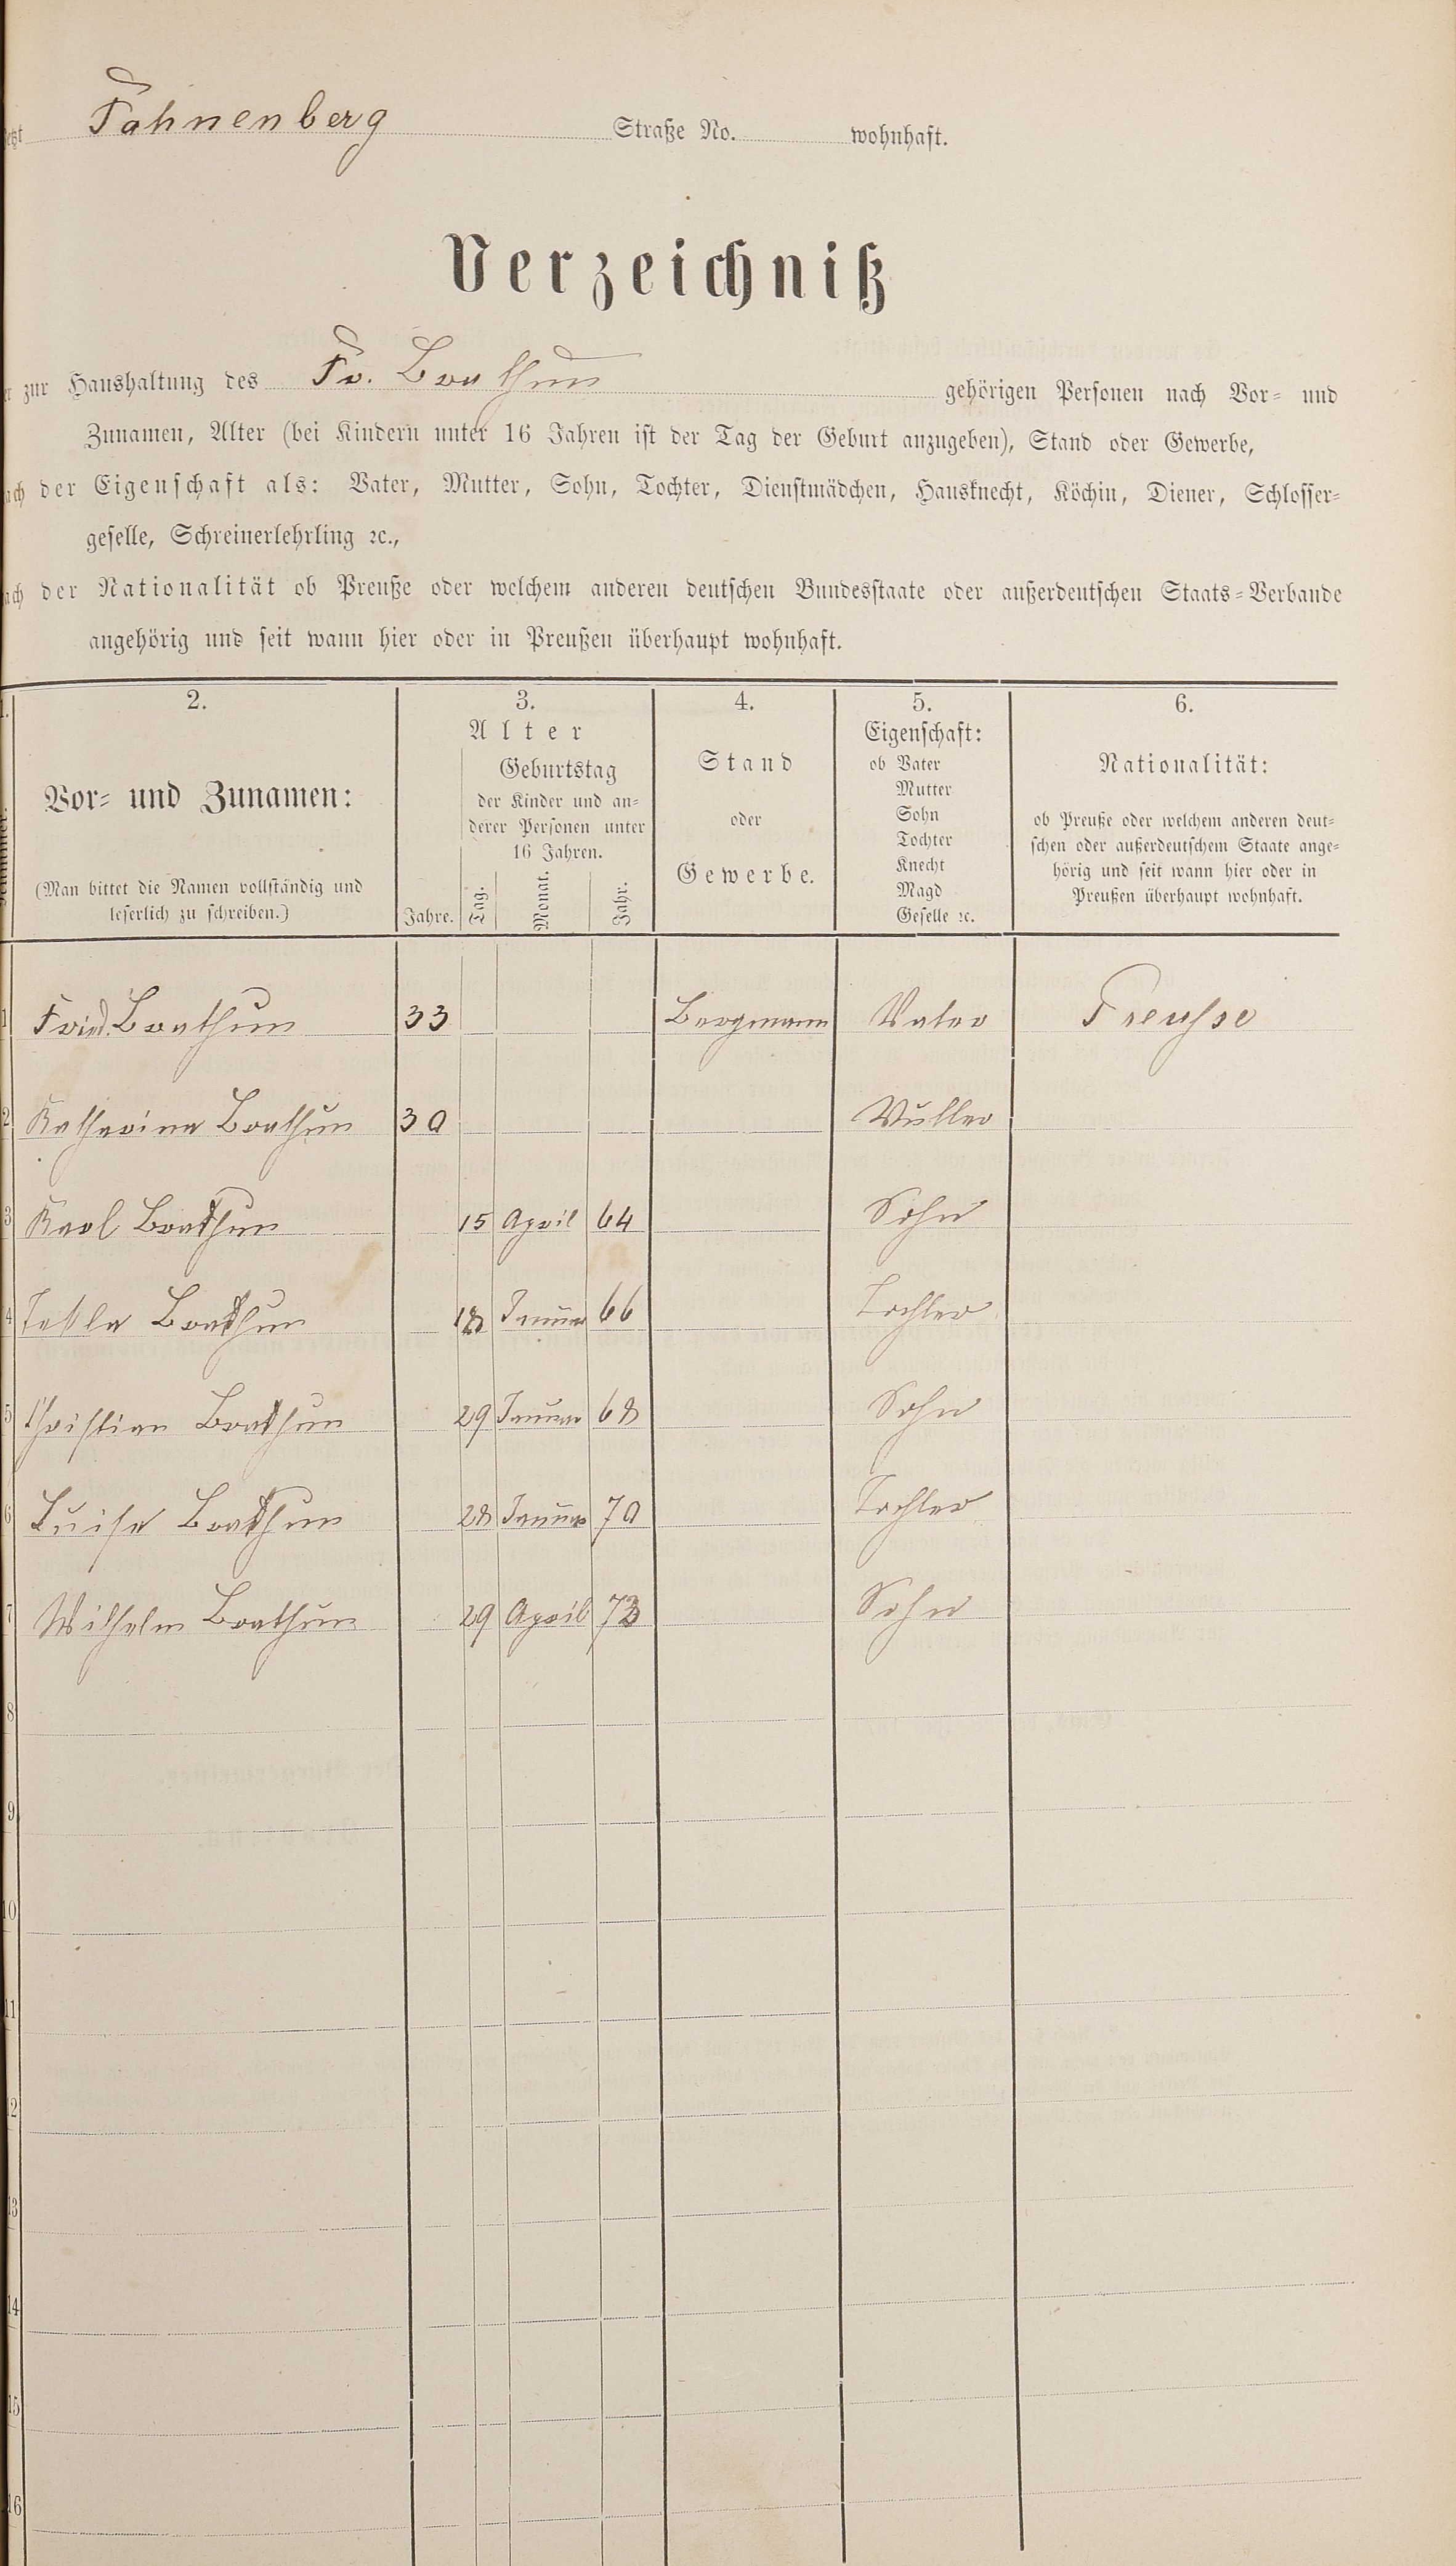 jetzt Fahnenberg Straße No. wohnhaft.
Verzeichniß
er zur Haushaltung des Fr. Brathun gehörigen Personen nach Vor- und
Zunamen, Alter (bei Kindern unter 16 Jahren ist der Tag der Geburt anzugeben), Stand oder Gewerbe,
ach der Eigenschaft als: Vater, Mutter, Sohn, Tochter, Dienstmädchen, Hausknecht, Köchin, Diener, Schlosser-
geselle, Schreinerlehrling ꝛc.,
ach der Nationalität ob Preuße oder welchem anderen deutschen Bundesstaate oder außerdeutschen Staats-Verbande
angehörig und seit wann hier oder in Preußen überhaupt wohnhaft.
1. 2. 3. 4. 5. 6.
Vor- und Zunamen:
(Man bittet die Namen vollständig und
leserlich zu schreiben.)
Alter
Geburtstag
der Kinder und an-
derer Personen unter
16 Jahren.
Jahre. Tag. Monat. Jahr.
Stand
oder
Gewerbe.
Eigenschaft:
ob Vater
Mutter
Sohn
Tochter
Knecht
Magd
Geselle ꝛc.
Nationalität:
ob Preuße oder welchem anderen deut-
schen oder außerdeutschem Staate ange-
hörig und seit wann hier oder in
Preußen überhaupt wohnhaft.
1 Fried. Brathun 33 Bergmann Vater Preusse
2 Katharina Brathun 30 Mutter
3 Karl Brathun 15 April 64 Sohn
4 Brathun 18 Januar 66 Tochter
5 Christian Brathun 29 Januar 68 Sohn
6 Luise Brathun 28 Januar 70 Tochter
7 Wilhelm Brathun 29 April 73 Sohn
8
9
10
11
12
13
14
15
16